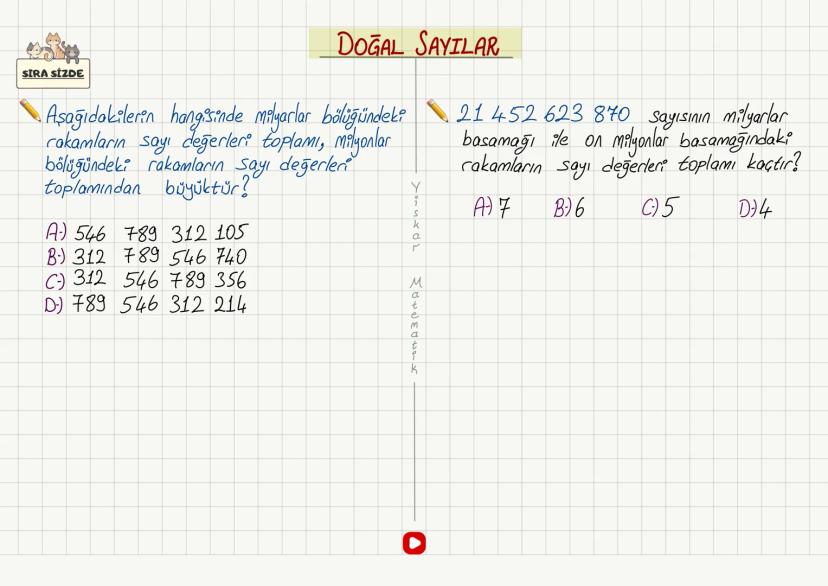 DOĞAL SAYILAR
SIRA SİZDE
Aşağıdakilerin hangisinde milyarlar bölüğündeki
rakamların sayı değerleri toplamı, milyonlar
bölüğündeki rakamların sayı değerleri
toplamından büyüktür?
A-) 546 789 312 105
B-) 312 789 546 740
C-) 312 546 789 356
D-) 789 546 312 214
Yiskar Matematik
21 452 623 870 sayısının milyarlar
basamağı ile on milyonlar basamağındaki
rakamların sayı değerleri toplamı kaçtır?
A-) 7 B-) 6 C-) 5 D-) 4